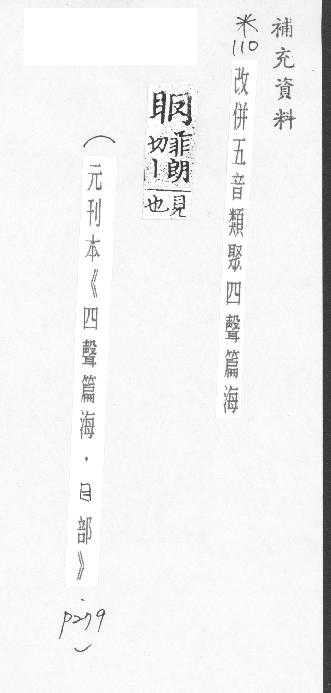 補充資料
※110 改併五音類聚四聲篇海
菲朗
切丨
見
也
（元刊本《四聲篇海．目部》p279）